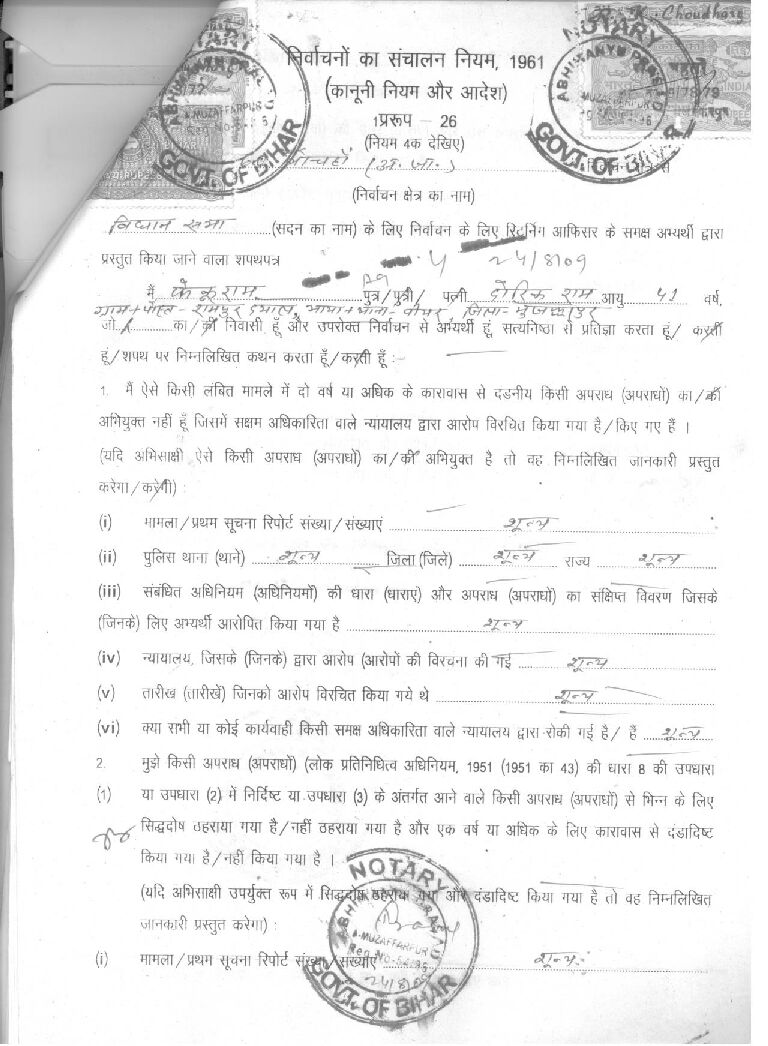 K. Choudhary
NOTARY
NOTARY
ABHIMANYU PRASAD
निर्वाचनों का संचालन नियम, 1961
(कानूनी नियम और आदेश)
1प्ररूप – 26
(नियम 4क देखिए)
MUZAFFARPUR
GOVT. OF BIHAR
GOVT. OF BIHAR
बोचहाँ (अ. जा.)
(निर्वाचन क्षेत्र का नाम)
विधान सभा (सदन का नाम) के लिए निर्वाचन के लिए रिटर्निंग आफिसर के समक्ष अभ्यर्थी द्वारा
प्रस्तुत किया जाने वाला शपथपत्र
24/8/09
मैं पुत्र/पुत्री/ पत्नी राम आयु 41 वर्ष,
जो का/की निवासी हूँ और उपरोक्त निर्वाचन से अभ्यर्थी हूं, सत्यनिष्ठा से प्रतिज्ञा करता हूँ/ करती
हूं/शपथ पर निम्नलिखित कथन करता हूँ/करती हूँ :–
1. मैं ऐसे किसी लंबित मामले में दो वर्ष या अधिक के कारावास से दडनीय किसी अपराध (अपराधों) का/की
अभियुक्त नहीं हूँ जिसमें सक्षम अधिकारिता वाले न्यायालय द्वारा आरोप विरचित किया गया है/किए गए हैं ।
(यदि अभिसाक्षी ऐसे किसी अपराध (अपराधों) का/की अभियुक्त है तो वह निम्नलिखित जानकारी प्रस्तुत
करेगा/करेगी) :
(i) मामला/प्रथम सूचना रिपोर्ट संख्या/संख्याएं शून्य
(ii) पुलिस थाना (थाने) शून्य जिला (जिले) शून्य राज्य शून्य
(iii) संबंधित अधिनियम (अधिनियमों) की धारा (धाराए) और अपराध (अपराधों) का संक्षिप्त विवरण जिसके
(जिनके) लिए अभ्यर्थी आरोपित किया गया है शून्य
(iv) न्यायालय, जिसके (जिनके) द्वारा आरोप (आरोपों की विरचना की गई शून्य
(v) तारीख (तारीखें) जिनको आरोप विरचित किया गये थे शून्य
(vi) क्या सभी या कोई कार्यवाही किसी समक्ष अधिकारिता वाले न्यायालय द्वारा रोकी गई है/ हैं शून्य
2. मुझे किसी अपराध (अपराधों) (लोक प्रतिनिधित्व अधिनियम, 1951 (1951 का 43) की धारा 8 की उपधारा
(1) या उपधारा (2) में निर्दिष्ट या उपधारा (3) के अंतर्गत आने वाले किसी अपराध (अपराधों) से भिन्न के लिए
सिद्धदोष ठहराया गया है/नहीं ठहराया गया है और एक वर्ष या अधिक के लिए कारावास से दंडादिष्ट
किया गया है/नहीं किया गया है ।
NOTARY
(यदि अभिसाक्षी उपर्युक्त रूप में सिद्धदोष ठहराया गया और दंडादिष्ट किया गया है तो वह निम्नलिखित
जानकारी प्रस्तुत करेगा) :
ABHIMANYU PRASAD
MUZAFFARPUR
(i) मामला/प्रथम सूचना रिपोर्ट संख्या/संख्याएं शून्य
24/8/09
GOVT. OF BIHAR